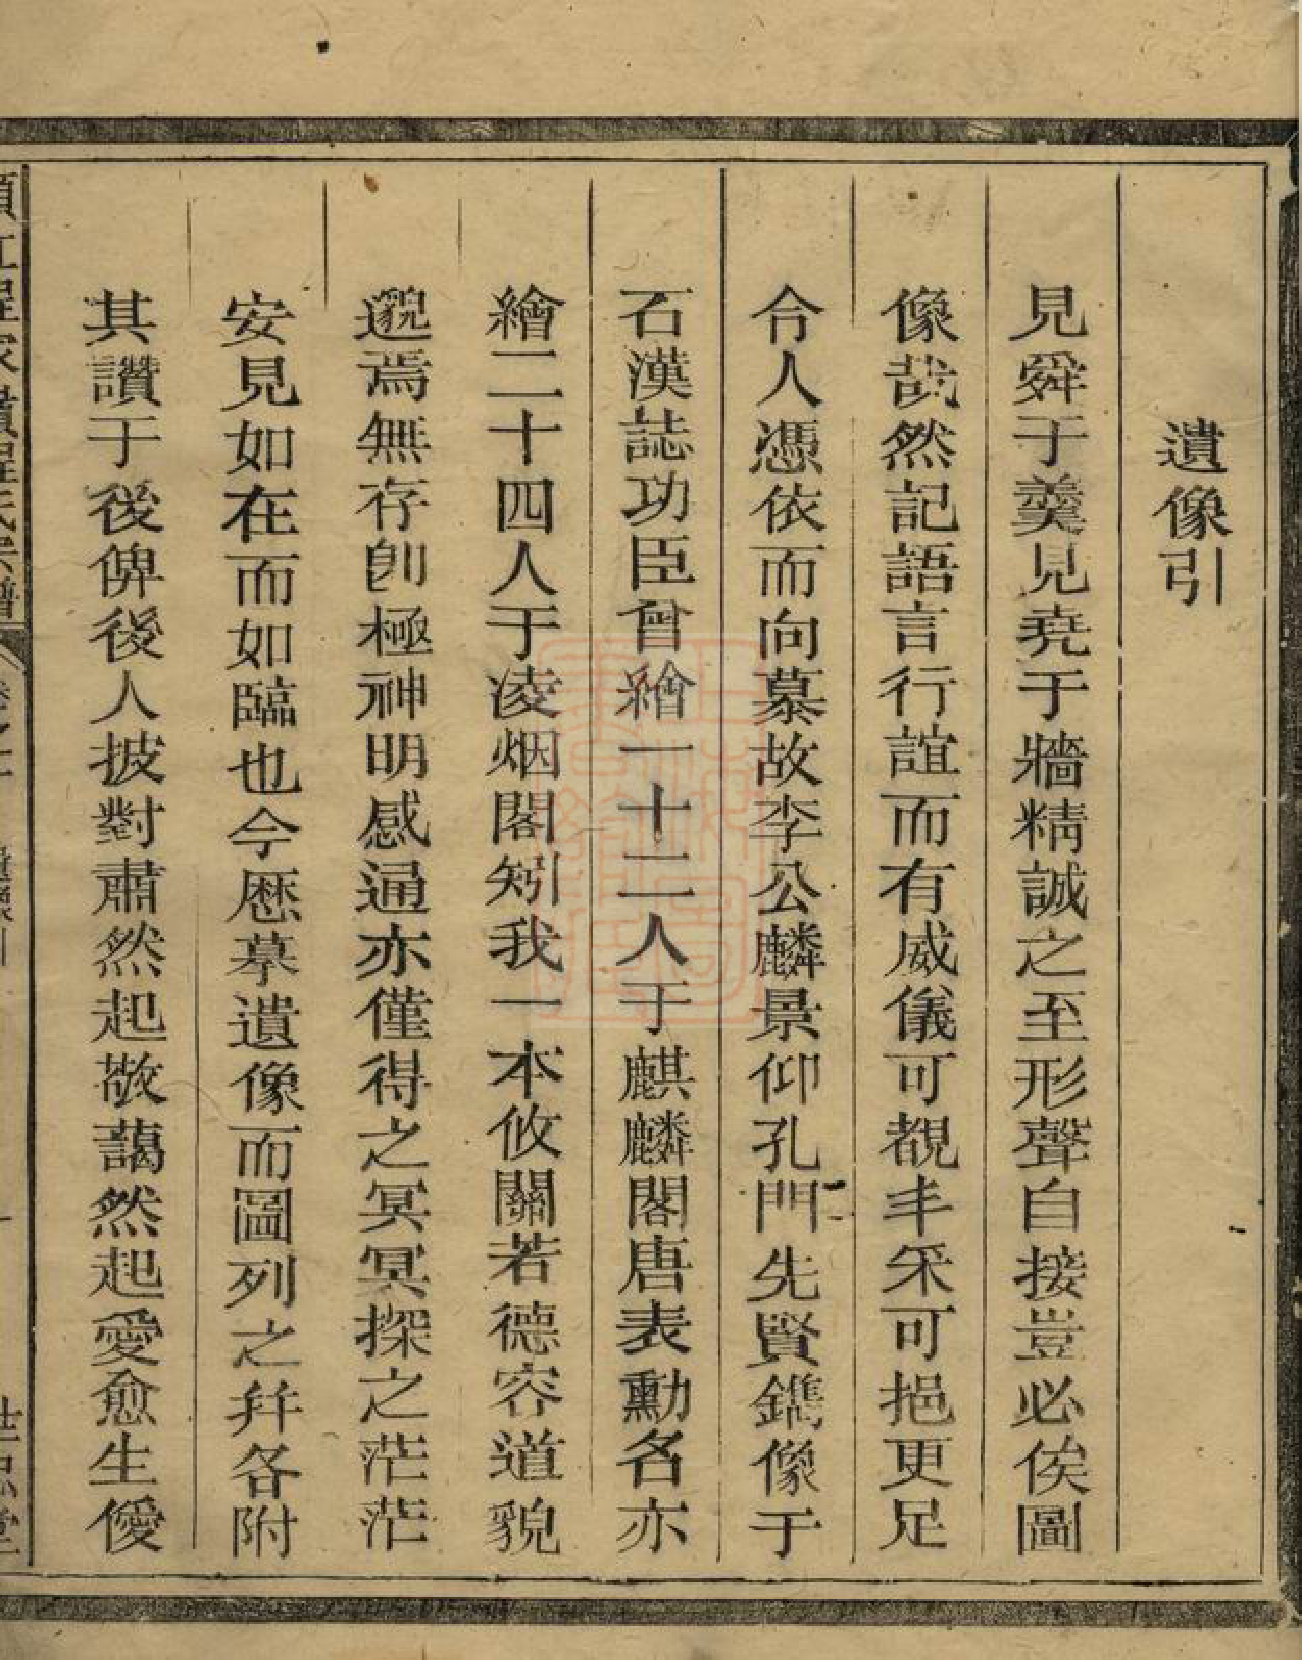 遺像引
見舜于羹見堯于牆精誠之至形聲自接豈必俟圖
像哉然記語言行誼而有威儀可覩丰采可挹更足
令人憑依而向慕故李公麟景仰孔門先賢鐫像于
石漢誌功臣曾繪一十二人于麒麟閣唐表勳名亦
繪二十四人于凌烟閣矧我一本攸關若德容道貌
邈焉無存卽極神明感通亦僅得之冥冥探之茫茫
安見如在而如臨也今歷摹遺像而圖列之幷各附
其讚于後俾後人披對肅然起敬藹然起愛愈生僾
程氏宗譜
遺像引
世忠堂